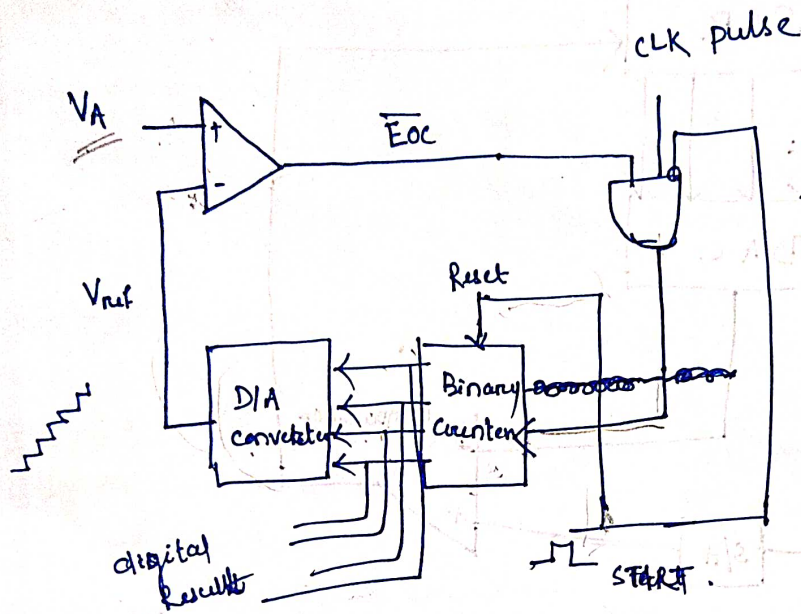 CLK pulse
VA
+
-
EOC
Vref
Reset
D/A
Binary
Counter
digital
Result
START.